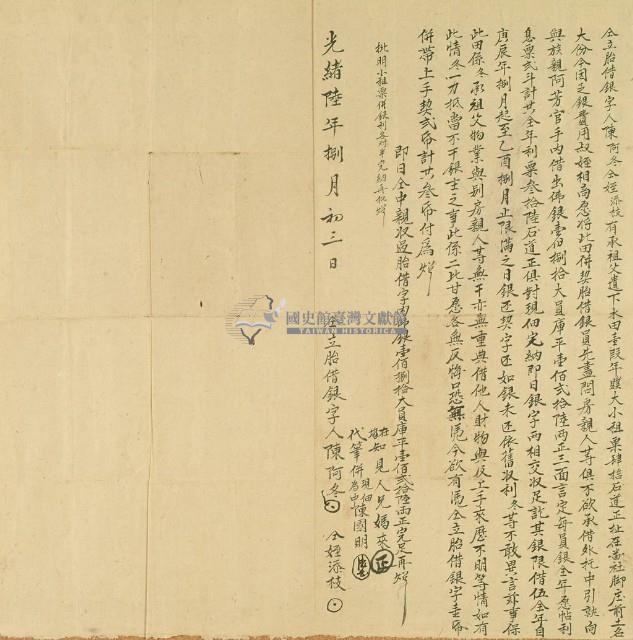 仝立胎借銀字人陳阿冬仝姪添枝有承祖父遺下水田壹段年贌大小租粟肆拾石道正址在蔴社脚庄前土名
大份今因乏銀費用叔姪相商愿將此田併契胎借銀員先盡問房親人等俱不欲承借外托中引就向
與族親阿芳官手內借出佛銀壹佰捌拾大員庫平壹佰弍拾陸両正三面言定每員銀全年愿帖利
息粟弍斗計共全年利粟叁拾陸石道正俱對現佃完納即日銀字兩相交収足訖其銀限借伍全年自
庚辰年捌月起至乙酉捌月止限滿之日銀还契字还如銀未还依舊収利冬等不敢異言訟事保
此田係冬承祖父物業與别房親人等無干亦無重典借他人財物與及上手來歷不明等情如有
此情冬一力抵當不干銀主之事此係二比甘愿各無反悔口恐無凴今欲有凴仝立胎借銀字壹帋
併帶上手契弍帋計共叁帋付為炤
即日仝中親収過胎借字內佛銀壹佰捌拾大員庫平壹佰弍拾陸両正完足再炤
批明小租粟併銀利冬對半完納再批炤
在塲知見人兄媽來
代筆併為中現佃陳國明
光緒陸年捌月初三日 仝立胎借銀字人陳阿冬 仝姪添枝
國史館臺灣文獻館
TAIWAN HISTORICA